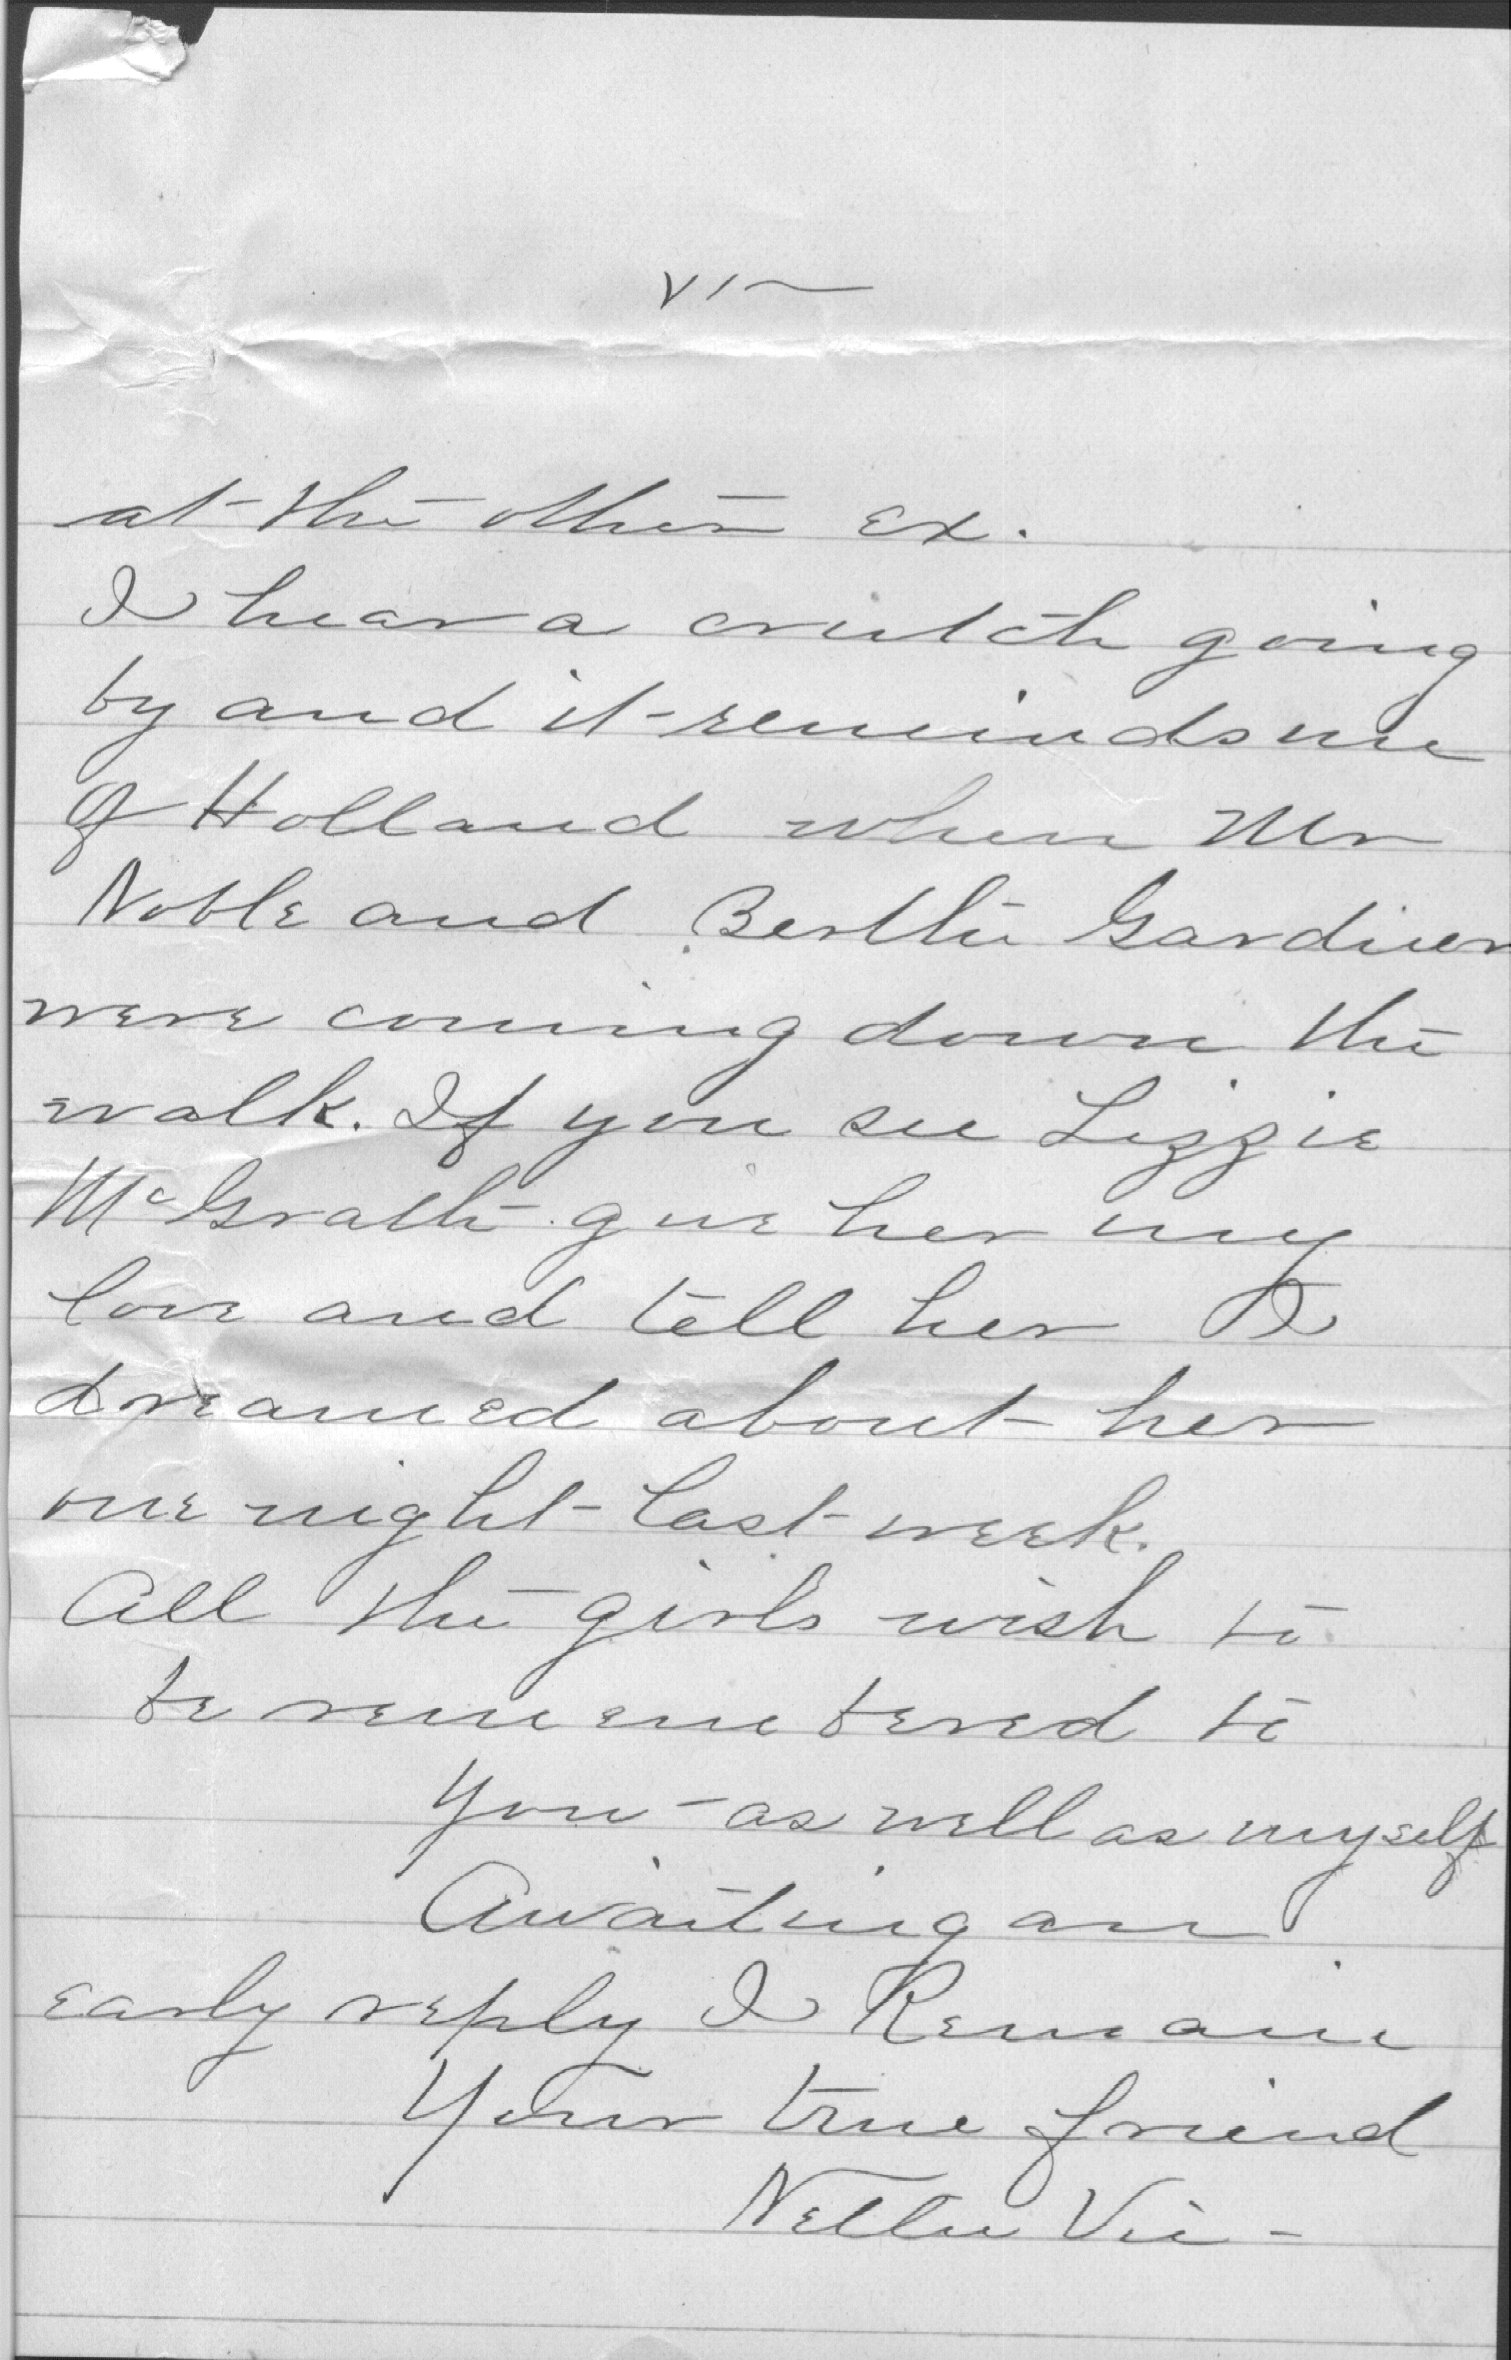 VI
at the other ex.
I hear a crutch going
by and it reminds me
of Holland when Mr
Noble and Berthie Gardiner
were coming down the
walk. If you see Lizzie
McGrath give her my
love and tell her I
dreamed about her
one night last week.
All the girls wish to
be remembered to
you - as well as myself
Awaiting an
early reply I Remain
Your true friend
Nettie Vie -